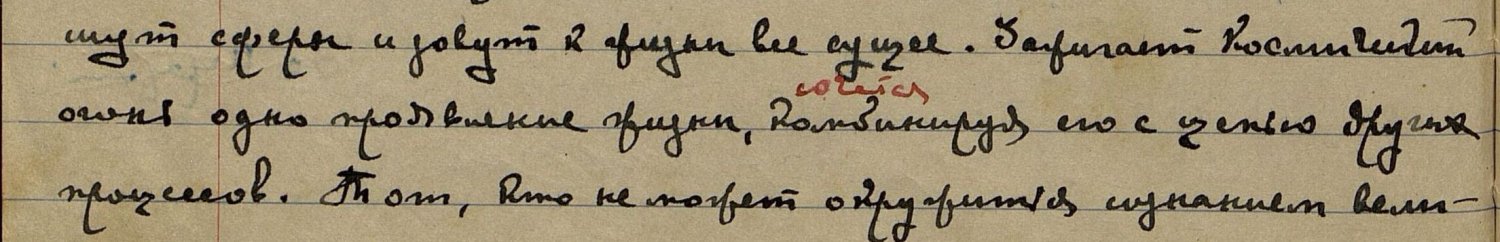 шут сферы и зовут к жизни все сущее. Зажигает Космический
сочетая
огонь одно проявление жизни, комбинируя его с цепью других
процессов. Тот, кто не может окружиться сознанием вели-